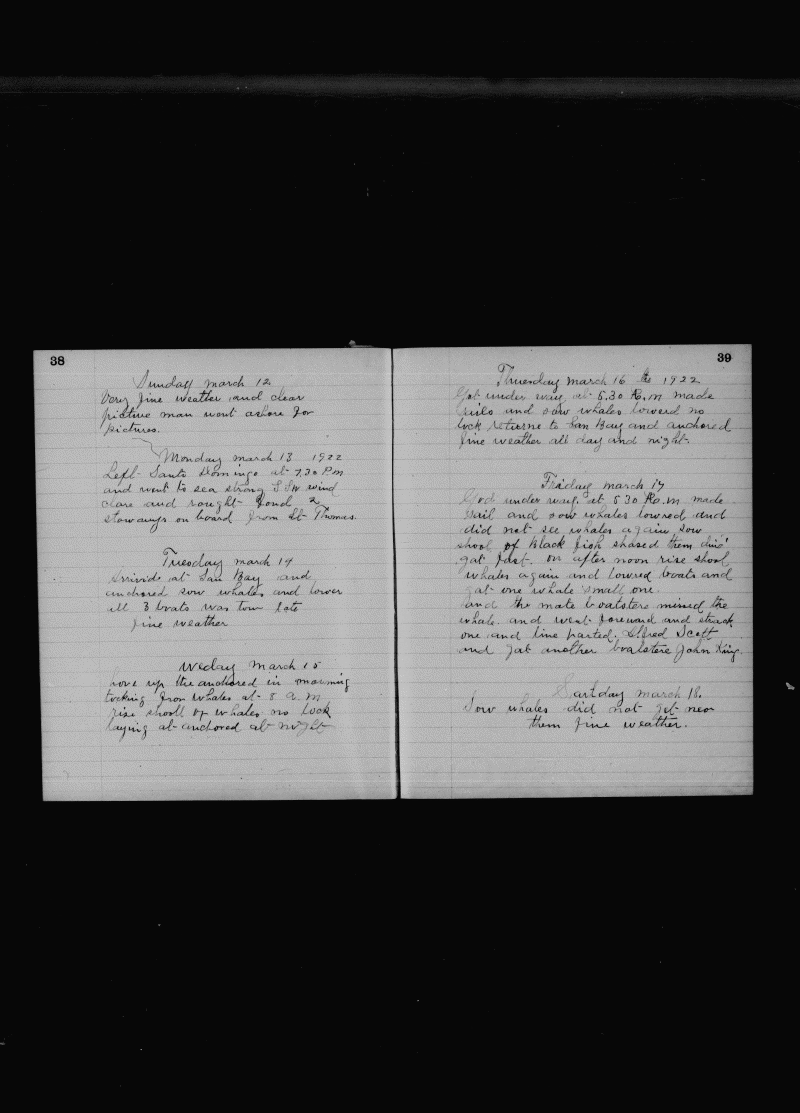 38
Sunday march 12
Very fine weather and clear
picture man went ashore for
pictures.
Monday march 13 1922
Left Santo Domingo at 7.30 P.m
and went to sea strong S SW wind
clare and rought fond 2
stowauys on board from St Thomas.
Tuesday march 14
Arrivide at San Bay and
anchored sow whales and lower
all 3 boats was tow late
fine weather
Weday march 15
hove up the anchored in morning
looking fron whales at 8 a.m
rise shooll of whales no Look
laying at anchored at night
39
Thuesday march 16 the 1922
Got under way at 5.30 A.m made
sails and sow whales lowerd no
luck returne to San Bay and anchored
fine weather all day and night.
Friday march 17
God under way. at 5 30 A.m. made
sail and sow whales lowred and
did not see whales again, sow
shool of Black fish shased them
gat fast. on after noon rise shool
whales again and lowred boats and
gat one whale small one.
and the mate boatstere missed the
whale. and went foreward and strack
one and line parted. Scott
and gat another boatstere John King.
Sartday march 18.
Sow whales did not get near
them fine weather.